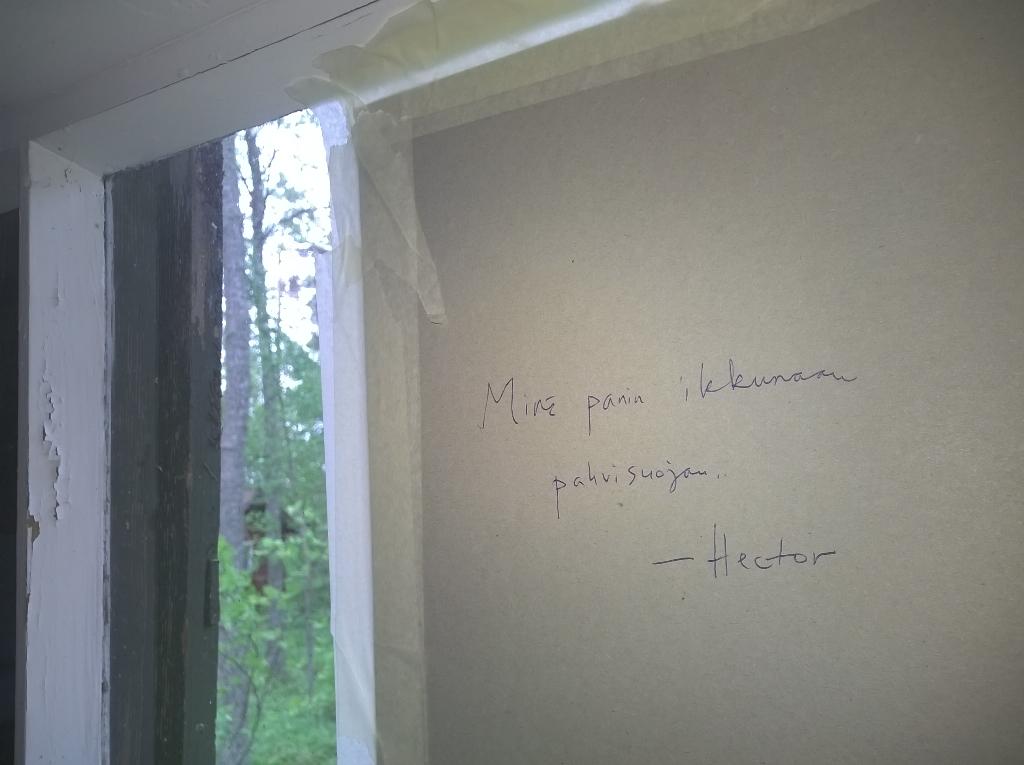 Minä panin ikkunaan
pahvisuojan..
— Hector